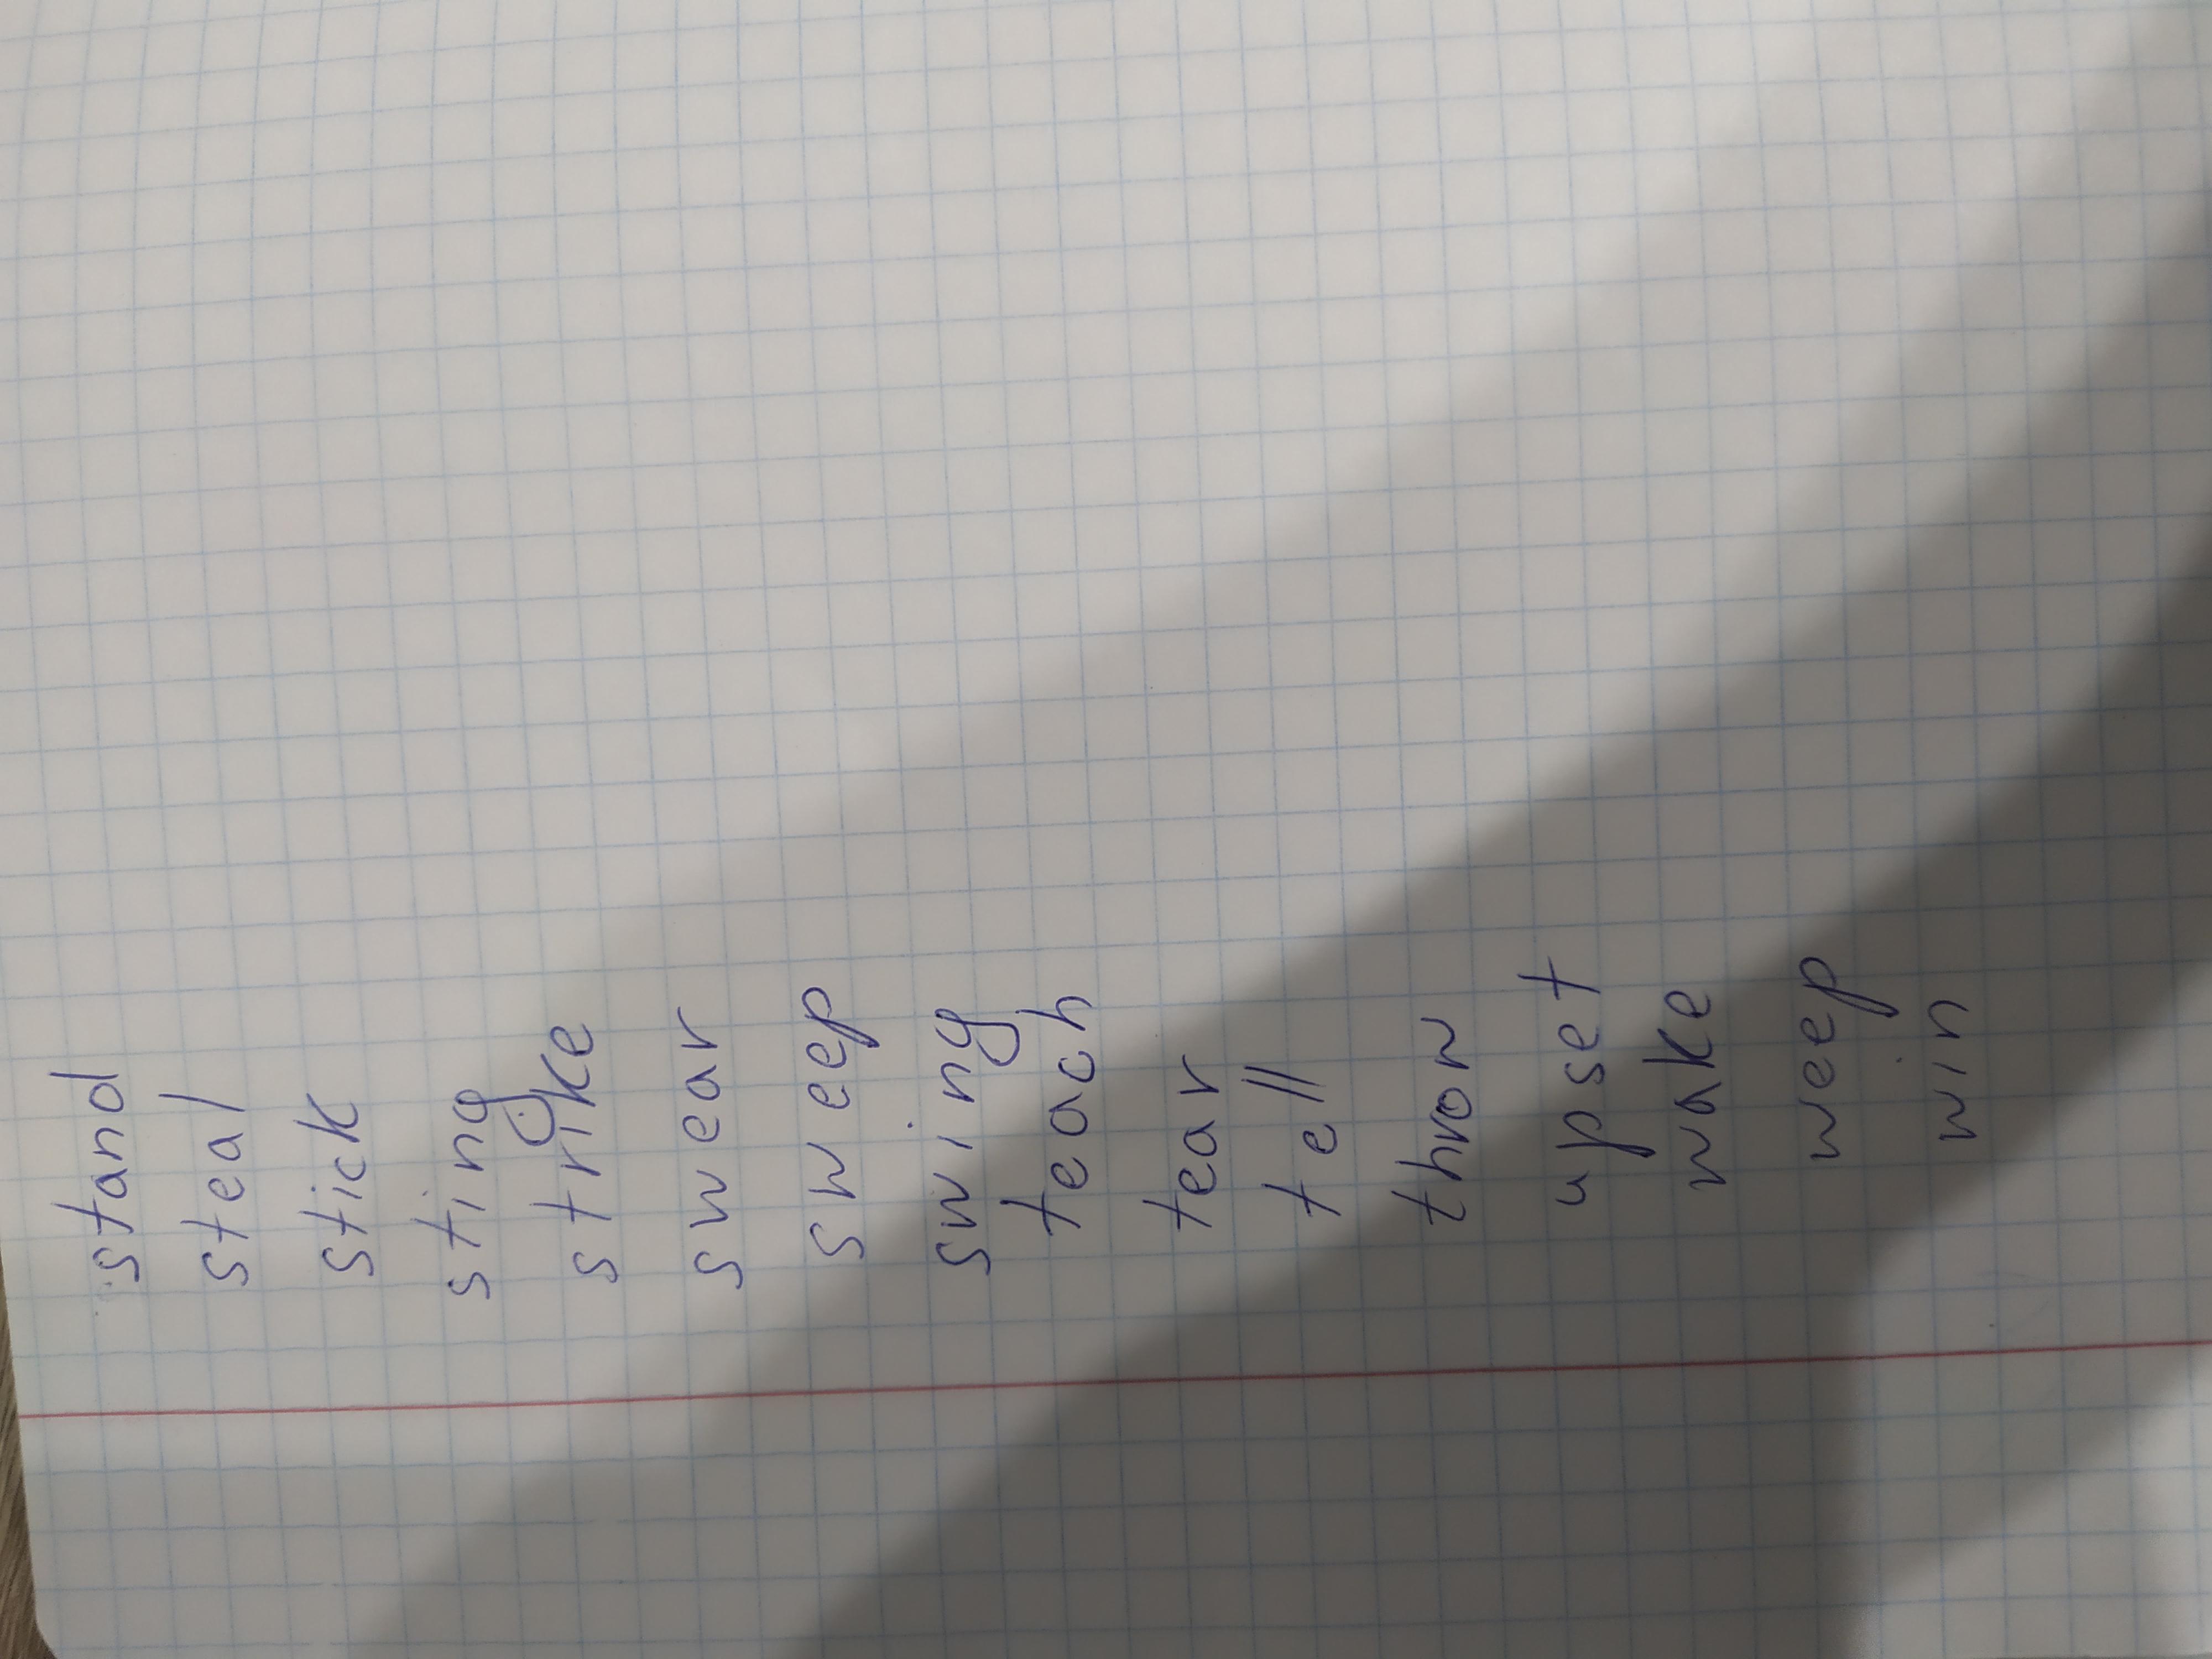 stand
steal
stick
sting
strike
swear
sweep
swing
teach
tear
tell
throw
upset
wake
weep
win